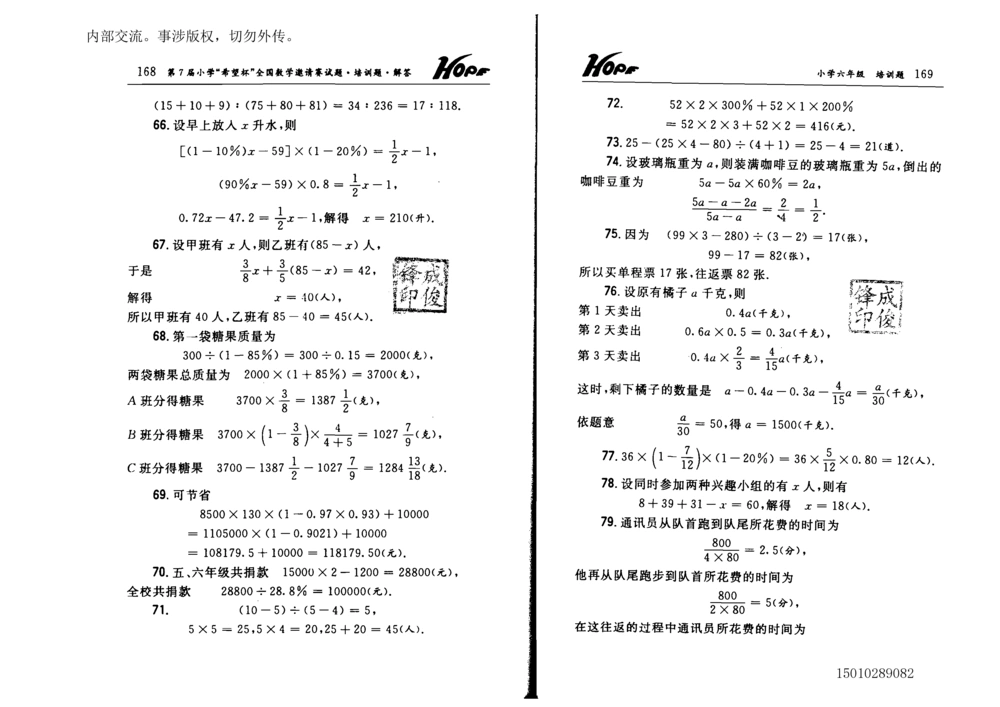 内部交流。事涉版权，切勿外传。
168 第7届小学“希望杯”全国数学邀请赛试题·培训题·解答 HOPE
(15＋10＋9)：(75＋80＋81)＝34：236＝17：118.
66. 设早上放入 x 升水,则
[(1－10%)x－59]×(1－20%)＝1/2x－1,
(90%x－59)×0.8＝1/2x－1,
0.72x－47.2＝1/2x－1,解得 x＝210(升).
67. 设甲班有 x 人,则乙班有(85－x)人,
于是 3/8x＋3/5(85－x)＝42,
解得 x＝40(人),
所以甲班有 40 人,乙班有 85－40＝45(人).
68. 第一袋糖果质量为
300÷(1－85%)＝300÷0.15＝2000(克),
两袋糖果总质量为 2000×(1＋85%)＝3700(克),
A 班分得糖果 3700×3/8＝1387 1/2(克),
B 班分得糖果 3700×(1－3/8)×4/(4＋5)＝1027 7/9(克),
C 班分得糖果 3700－1387 1/2－1027 7/9＝1284 13/18(克).
69. 可节省
8500×130×(1－0.97×0.93)＋10000
＝1105000×(1－0.9021)＋10000
＝108179.5＋10000＝118179.50(元).
70. 五、六年级共捐款 15000×2－1200＝28800(元),
全校共捐款 28800÷28.8%＝100000(元).
71. (10－5)÷(5－4)＝5,
5×5＝25,5×4＝20,25＋20＝45(人).
HOPE 小学六年级 培训题 169
72. 52×2×300%＋52×1×200%
＝52×2×3＋52×2＝416(元).
73. 25－(25×4－80)÷(4＋1)＝25－4＝21(道).
74. 设玻璃瓶重为 a,则装满咖啡豆的玻璃瓶重为 5a,倒出的
咖啡豆重为 5a－5a×60%＝2a,
(5a－a－2a)/(5a－a)＝2/4＝1/2.
75. 因为 (99×3－280)÷(3－2)＝17(张),
99－17＝82(张),
所以买单程票 17 张,往返票 82 张.
76. 设原有橘子 a 千克,则
第 1 天卖出 0.4a(千克),
第 2 天卖出 0.6a×0.5＝0.3a(千克),
第 3 天卖出 0.4a×2/3＝4/15a(千克),
这时,剩下橘子的数量是 a－0.4a－0.3a－4/15a＝a/30(千克),
依题意 a/30＝50,得 a＝1500(千克).
77. 36×(1－7/12)×(1－20%)＝36×5/12×0.80＝12(人).
78. 设同时参加两种兴趣小组的有 x 人,则有
8＋39＋31－x＝60,解得 x＝18(人).
79. 通讯员从队首跑到队尾所花费的时间为
800/(4×80)＝2.5(分),
他再从队尾跑步到队首所花费的时间为
800/(2×80)＝5(分),
在这往返的过程中通讯员所花费的时间为
锋成
印俊
锋成
印俊
15010289082